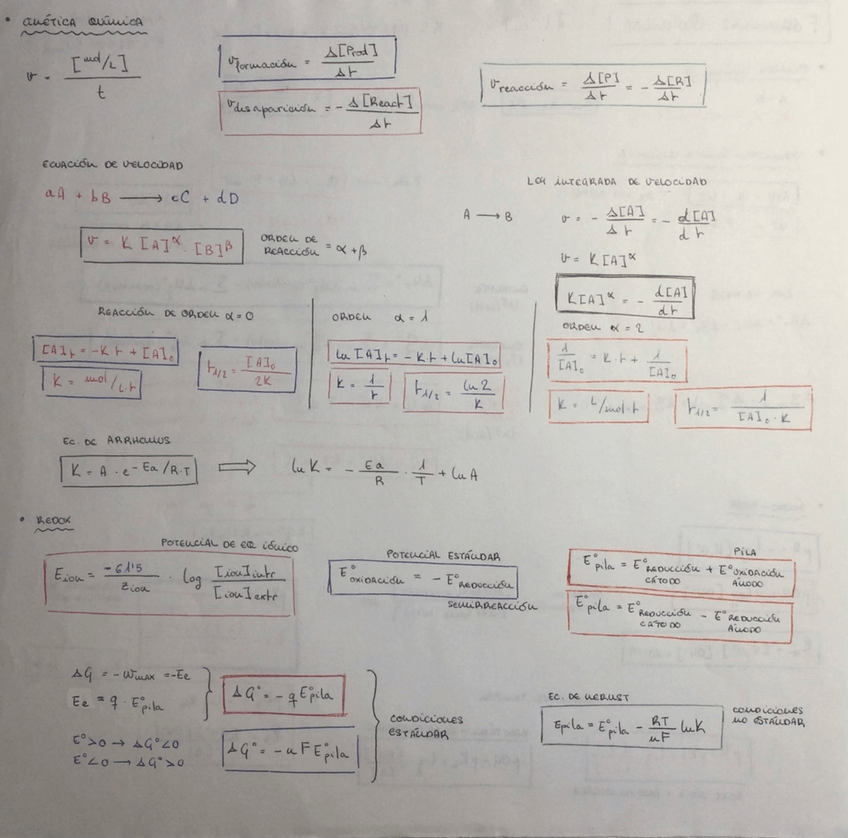 • CINÉTICA QUÍMICA
v = [mol/L] / t
v formación = Δ[Prod] / Δt
v desaparición = - Δ[React] / Δt
v reacción = Δ[P] / Δt = - Δ[R] / Δt
ECUACIÓN DE VELOCIDAD
aA + bB ⟶ cC + dD
v = K [A]^α · [B]^β
ORDEN DE REACCIÓN = α + β
LEY INTEGRADA DE VELOCIDAD
A ⟶ B
v = - Δ[A] / Δt = - d[A] / dt
v = K[A]^α
K[A]^α = - d[A] / dt
REACCIÓN DE ORDEN α = 0
[A]t = -K t + [A]₀
K = mol/L·t
t1/2 = [A]₀ / 2K
ORDEN α = 1
ln [A]t = -K t + ln[A]₀
K = 1 / t
t1/2 = ln 2 / K
ORDEN α = 2
1 / [A]₀ = K · t + 1 / [A]₀
K = L/mol·t
t1/2 = 1 / [A]₀ · K
EC. DE ARRHENIUS
K = A · e^-Ea/R·T ⇒ ln K = - Ea / R · 1 / T + ln A
• REDOX
POTENCIAL DE EQ IÓNICO
Eion = -61'5 / Zion · log [ion]intr / [ion]extr
POTENCIAL ESTÁNDAR
E° OXIDACIÓN = - E° REDUCCIÓN
SEMIRREACCIÓN
PILA
E°pila = E° REDUCCIÓN CÁTODO + E° OXIDACIÓN ÁNODO
E°pila = E° REDUCCIÓN CÁTODO - E° REDUCCIÓN ÁNODO
ΔG = -Wmax = -Ee
Ee = q · E°pila
ΔG° = - q E°pila
E° > 0 → ΔG° < 0
E° < 0 → ΔG° > 0
ΔG° = -n F E°pila
CONDICIONES ESTÁNDAR
EC. DE NERNST
Epila = E°pila - RT / nF ln K
CONDICIONES NO ESTÁNDAR